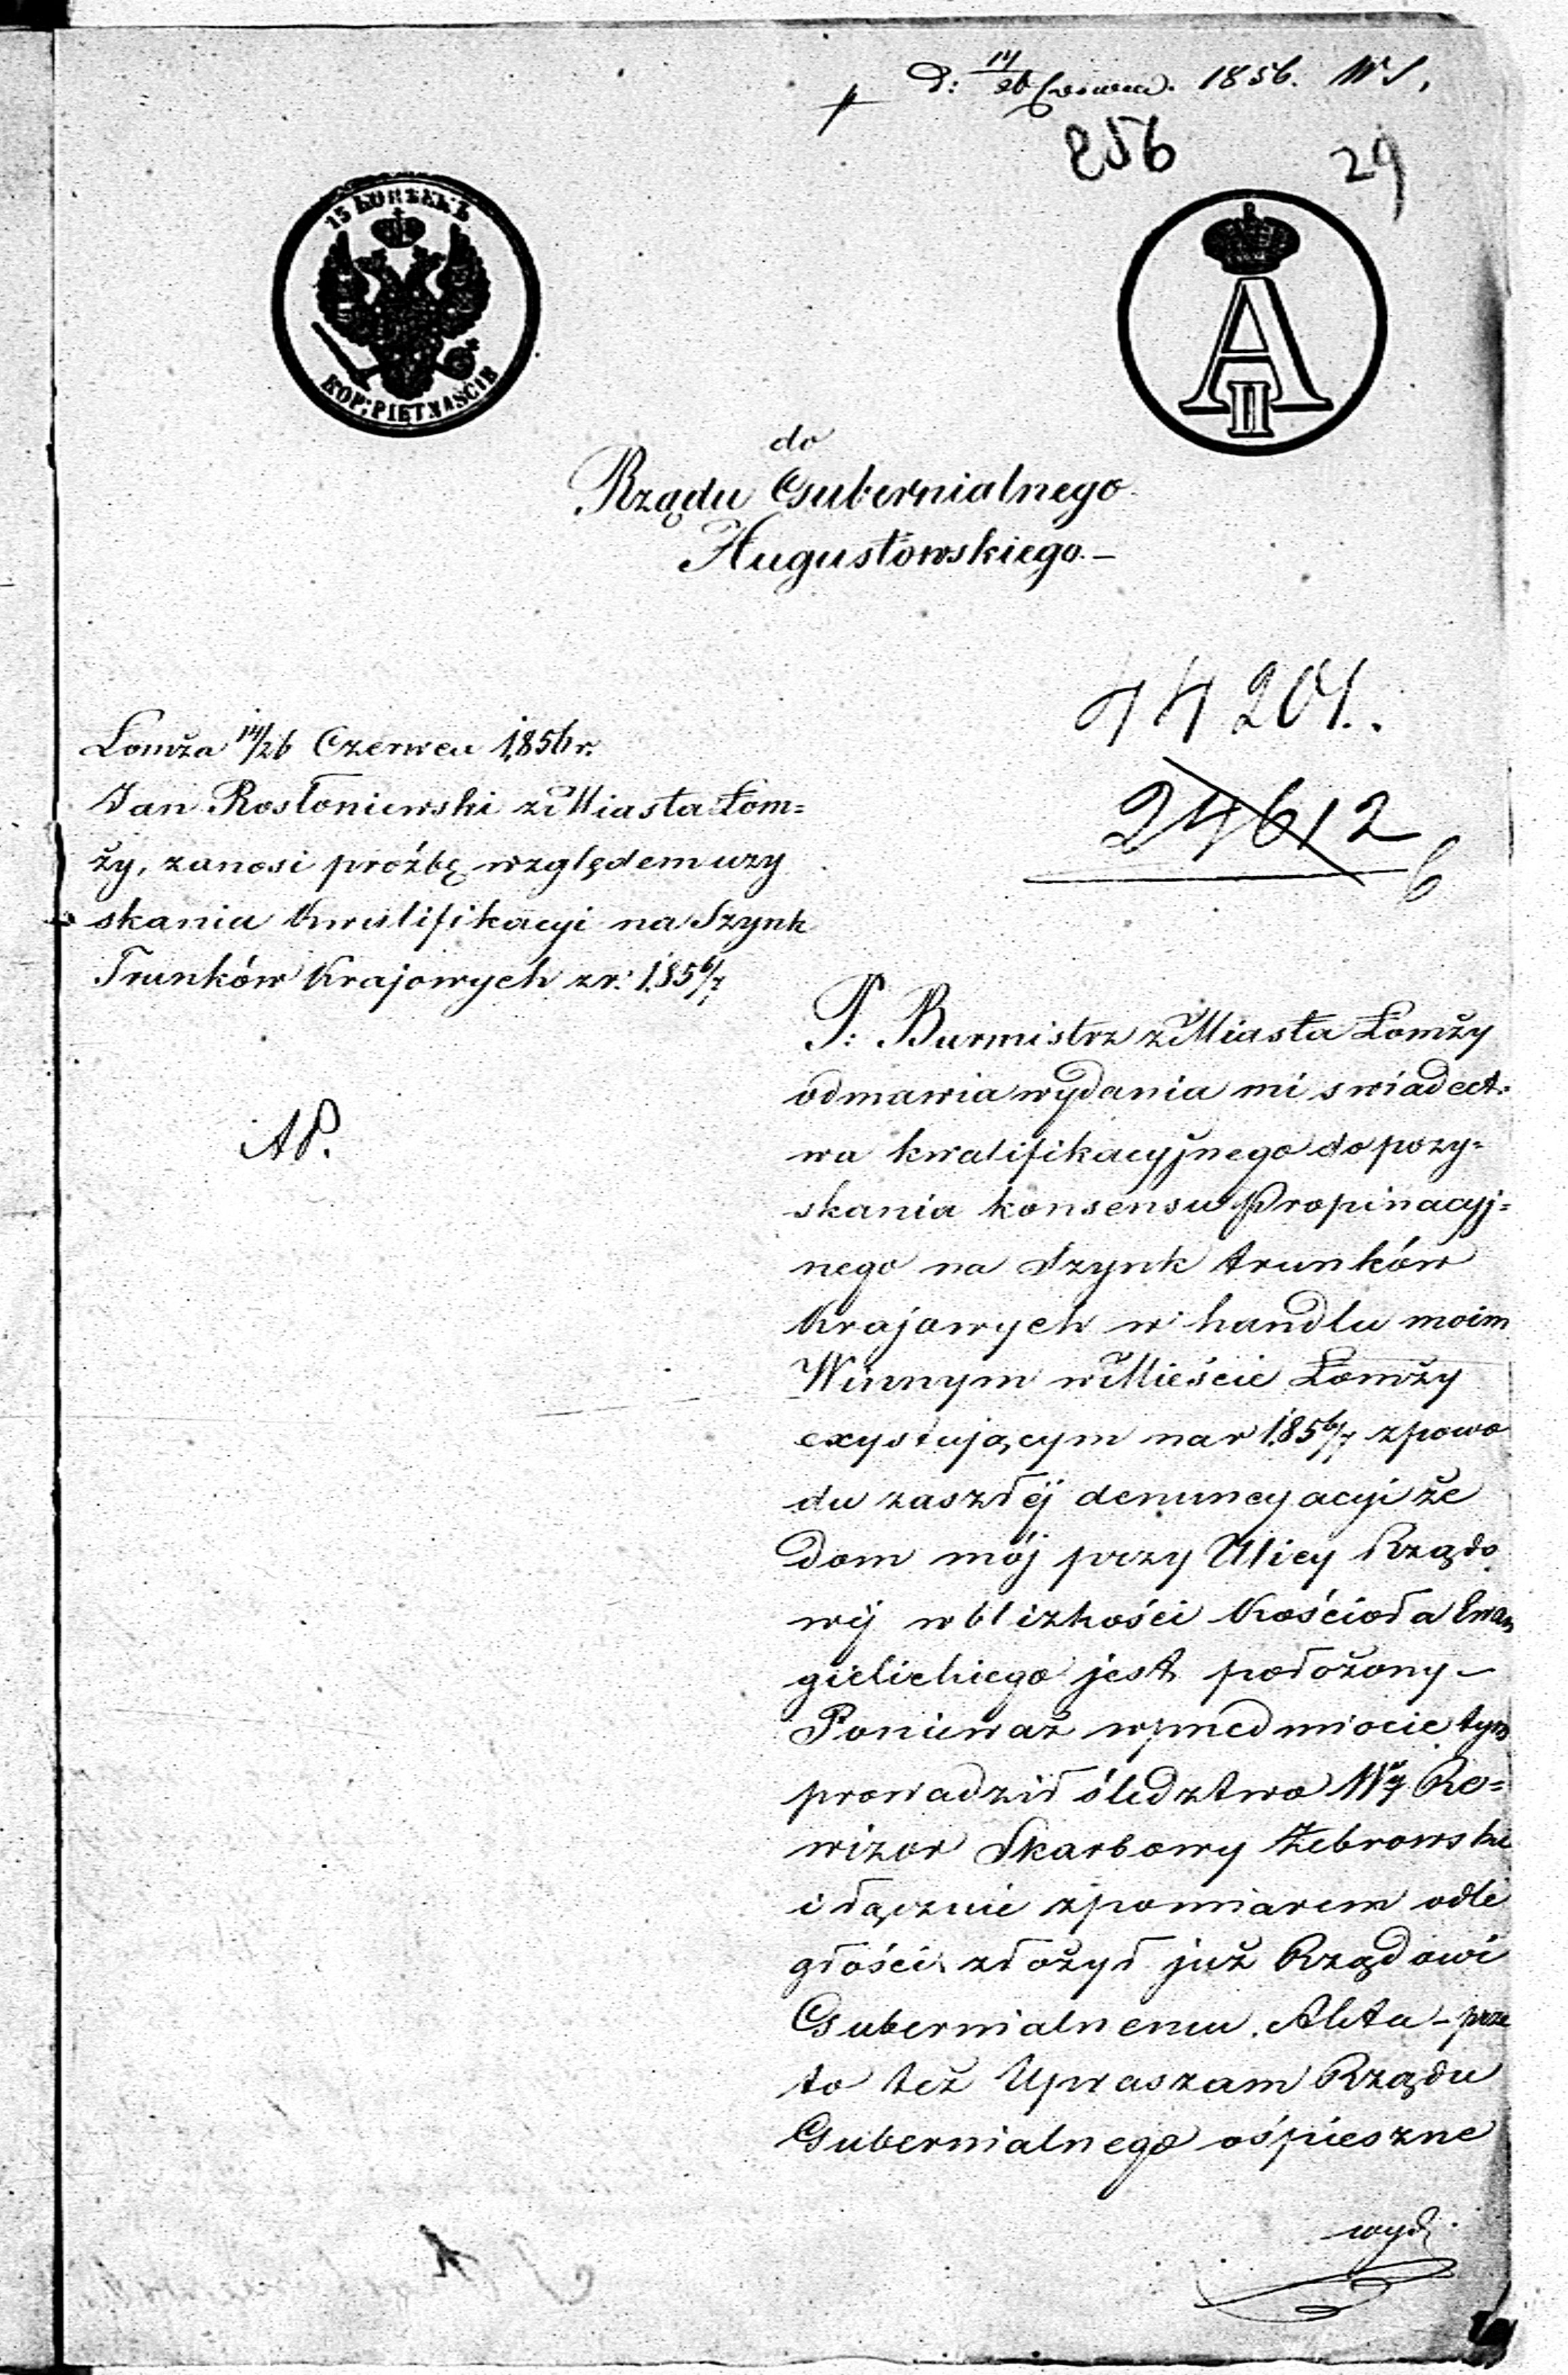 d: 14/26 Czerwca. 1856.
256
29
15 КОПѢЕКЪ
KOP: PIĘTNAŚCIE
A II
do
Rządu Gubernialnego
Augustowskiego.–
44204.
24612
6
Łomża 14/26 Czerwca 1856 r.
Jan Rosłoniewski z Miasta Łom=
ży, zanosi proźbę względem uzy
skania Kwalifikacyi na Szynk
Trunków Krajowych z r: 1856/7
AP.
P: Burmistrz z Miasta Łomży
odmawia wydania mi swiadect=
wa kwalifikacyjnego do pozy=
skania konsensu Propinacyj=
nego na Szynk trunków
Krajowych w handlu moim
Winnym w Mieście Łomży
exystującym na r 1856/7 z powo
du zaszłéj denuncyacyi że
Dom mój przy Ulicy Rządo
wéj w blizkości Kościoła Ewan
gielickiego jest położony –
Ponieważ w przedmiocie tym
prowadził śledztwo Wny Re=
wizor Skarbowy Żebrowski
i łącznie z pomiarem odle
głości złożył już Rządowi
Gubernialnemu Akta – prze
to też Upraszam Rządu
Gubernialnego o śpieszne
wyd: